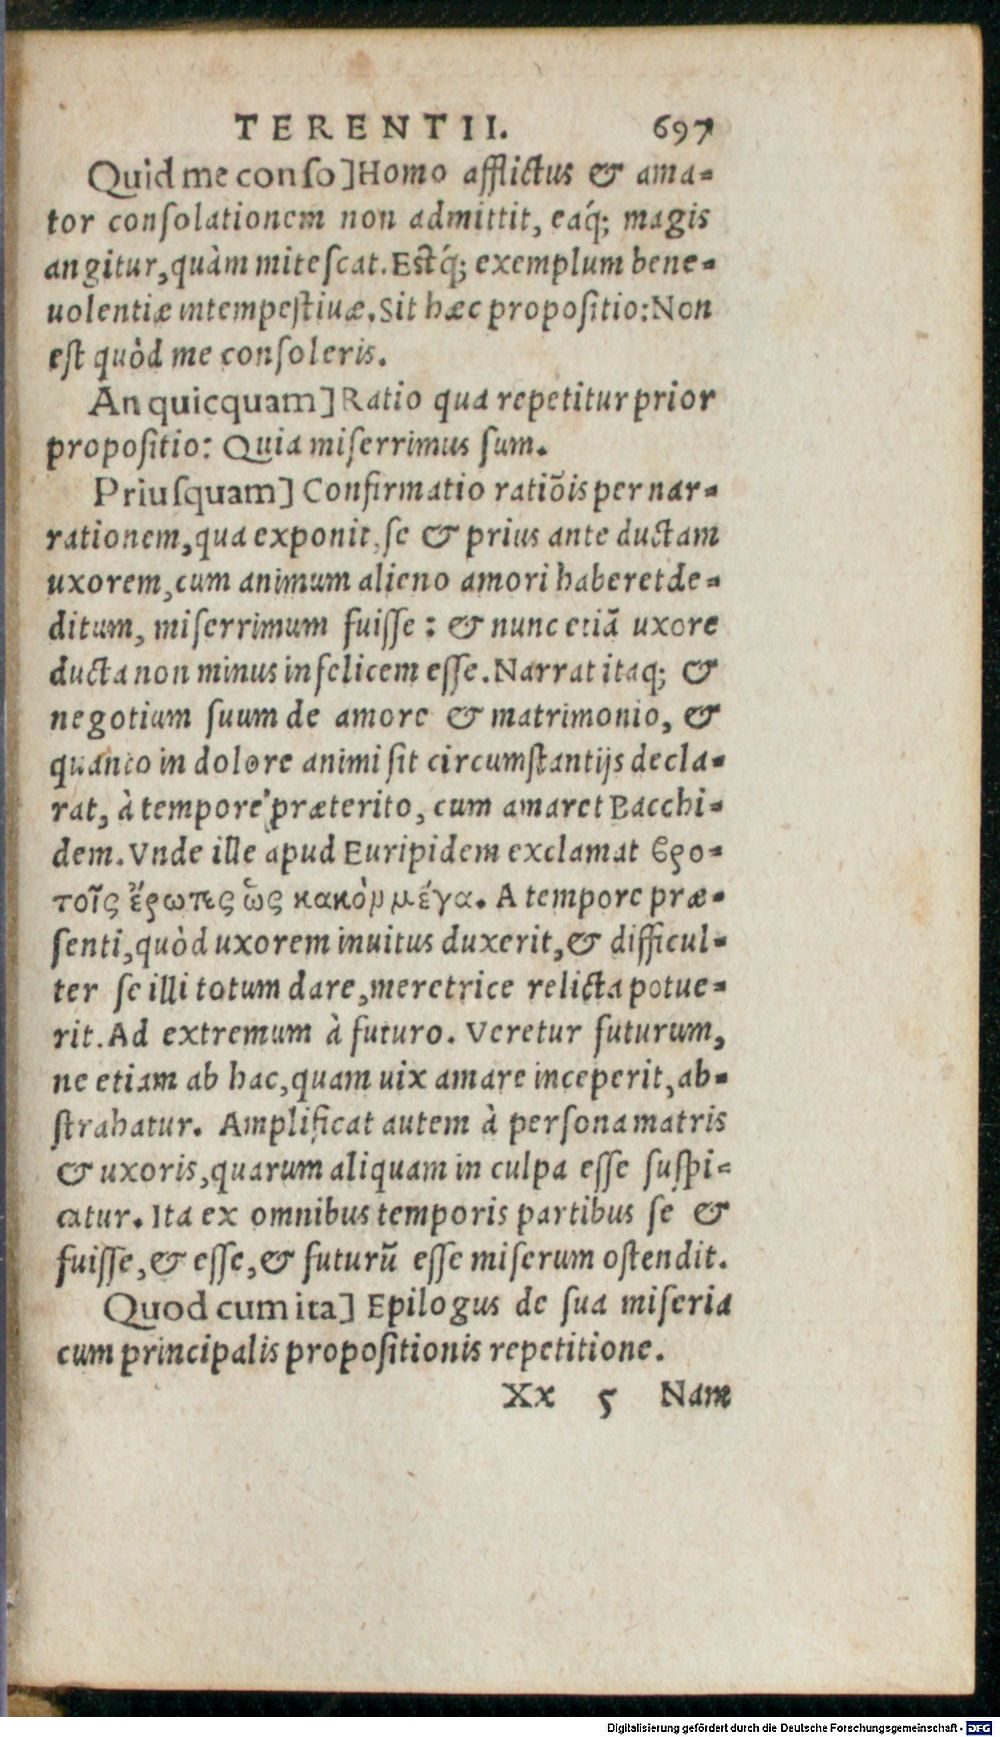 TERENTII. 697
Quid me conso] Homo afflictus & ama-
tor consolationem non admittit, eaq́; magis
angitur, quàm mitescat. Estq́; exemplum bene-
uolentiæ intempestiuæ. Sit hæc propositio: Non
est quòd me consoleris.
An quicquam] Ratio qua repetitur prior
propositio: Quia miserrimus sum.
Priusquam] Confirmatio ratiõis per nar-
rationem, qua exponit, se & prius ante ductam
uxorem, cum animum alieno amori haberet de-
ditum, miserrimum fuisse: & nunc etiã uxore
ducta non minus infelicem esse. Narrat itaq; &
negotium suum de amore & matrimonio, &
quanto in dolore animi sit circumstantijs decla-
rat, à tempore præterito, cum amaret Bacchi-
dem. Vnde ille apud Euripidem exclamat βρο-
τοῖς ἔρωτες ὡς κακὸν μέγα. A tempore præ-
senti, quòd uxorem inuitus duxerit, & difficul-
ter se illi totum dare, meretrice relicta potue-
rit. Ad extremum à futuro. Veretur futurum,
ne etiam ab hac, quam uix amare inceperit, ab-
strahatur. Amplificat autem à persona matris
& uxoris, quarum aliquam in culpa esse suspi-
catur. Ita ex omnibus temporis partibus se &
fuisse, & esse, & futurũ esse miserum ostendit.
Quod cum ita] Epilogus de sua miseria
cum principalis propositionis repetitione.
Xx 5 Nam
Digitalisierung gefördert durch die Deutsche Forschungsgemeinschaft - DFG